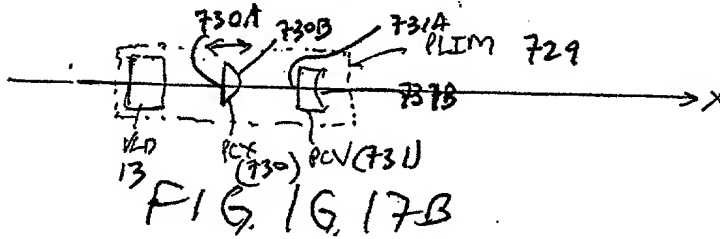 730A 730B 731A PLIM 729
731B X
VLD PCX PCV (731)
13 (730)
FIG. 1G, 17B